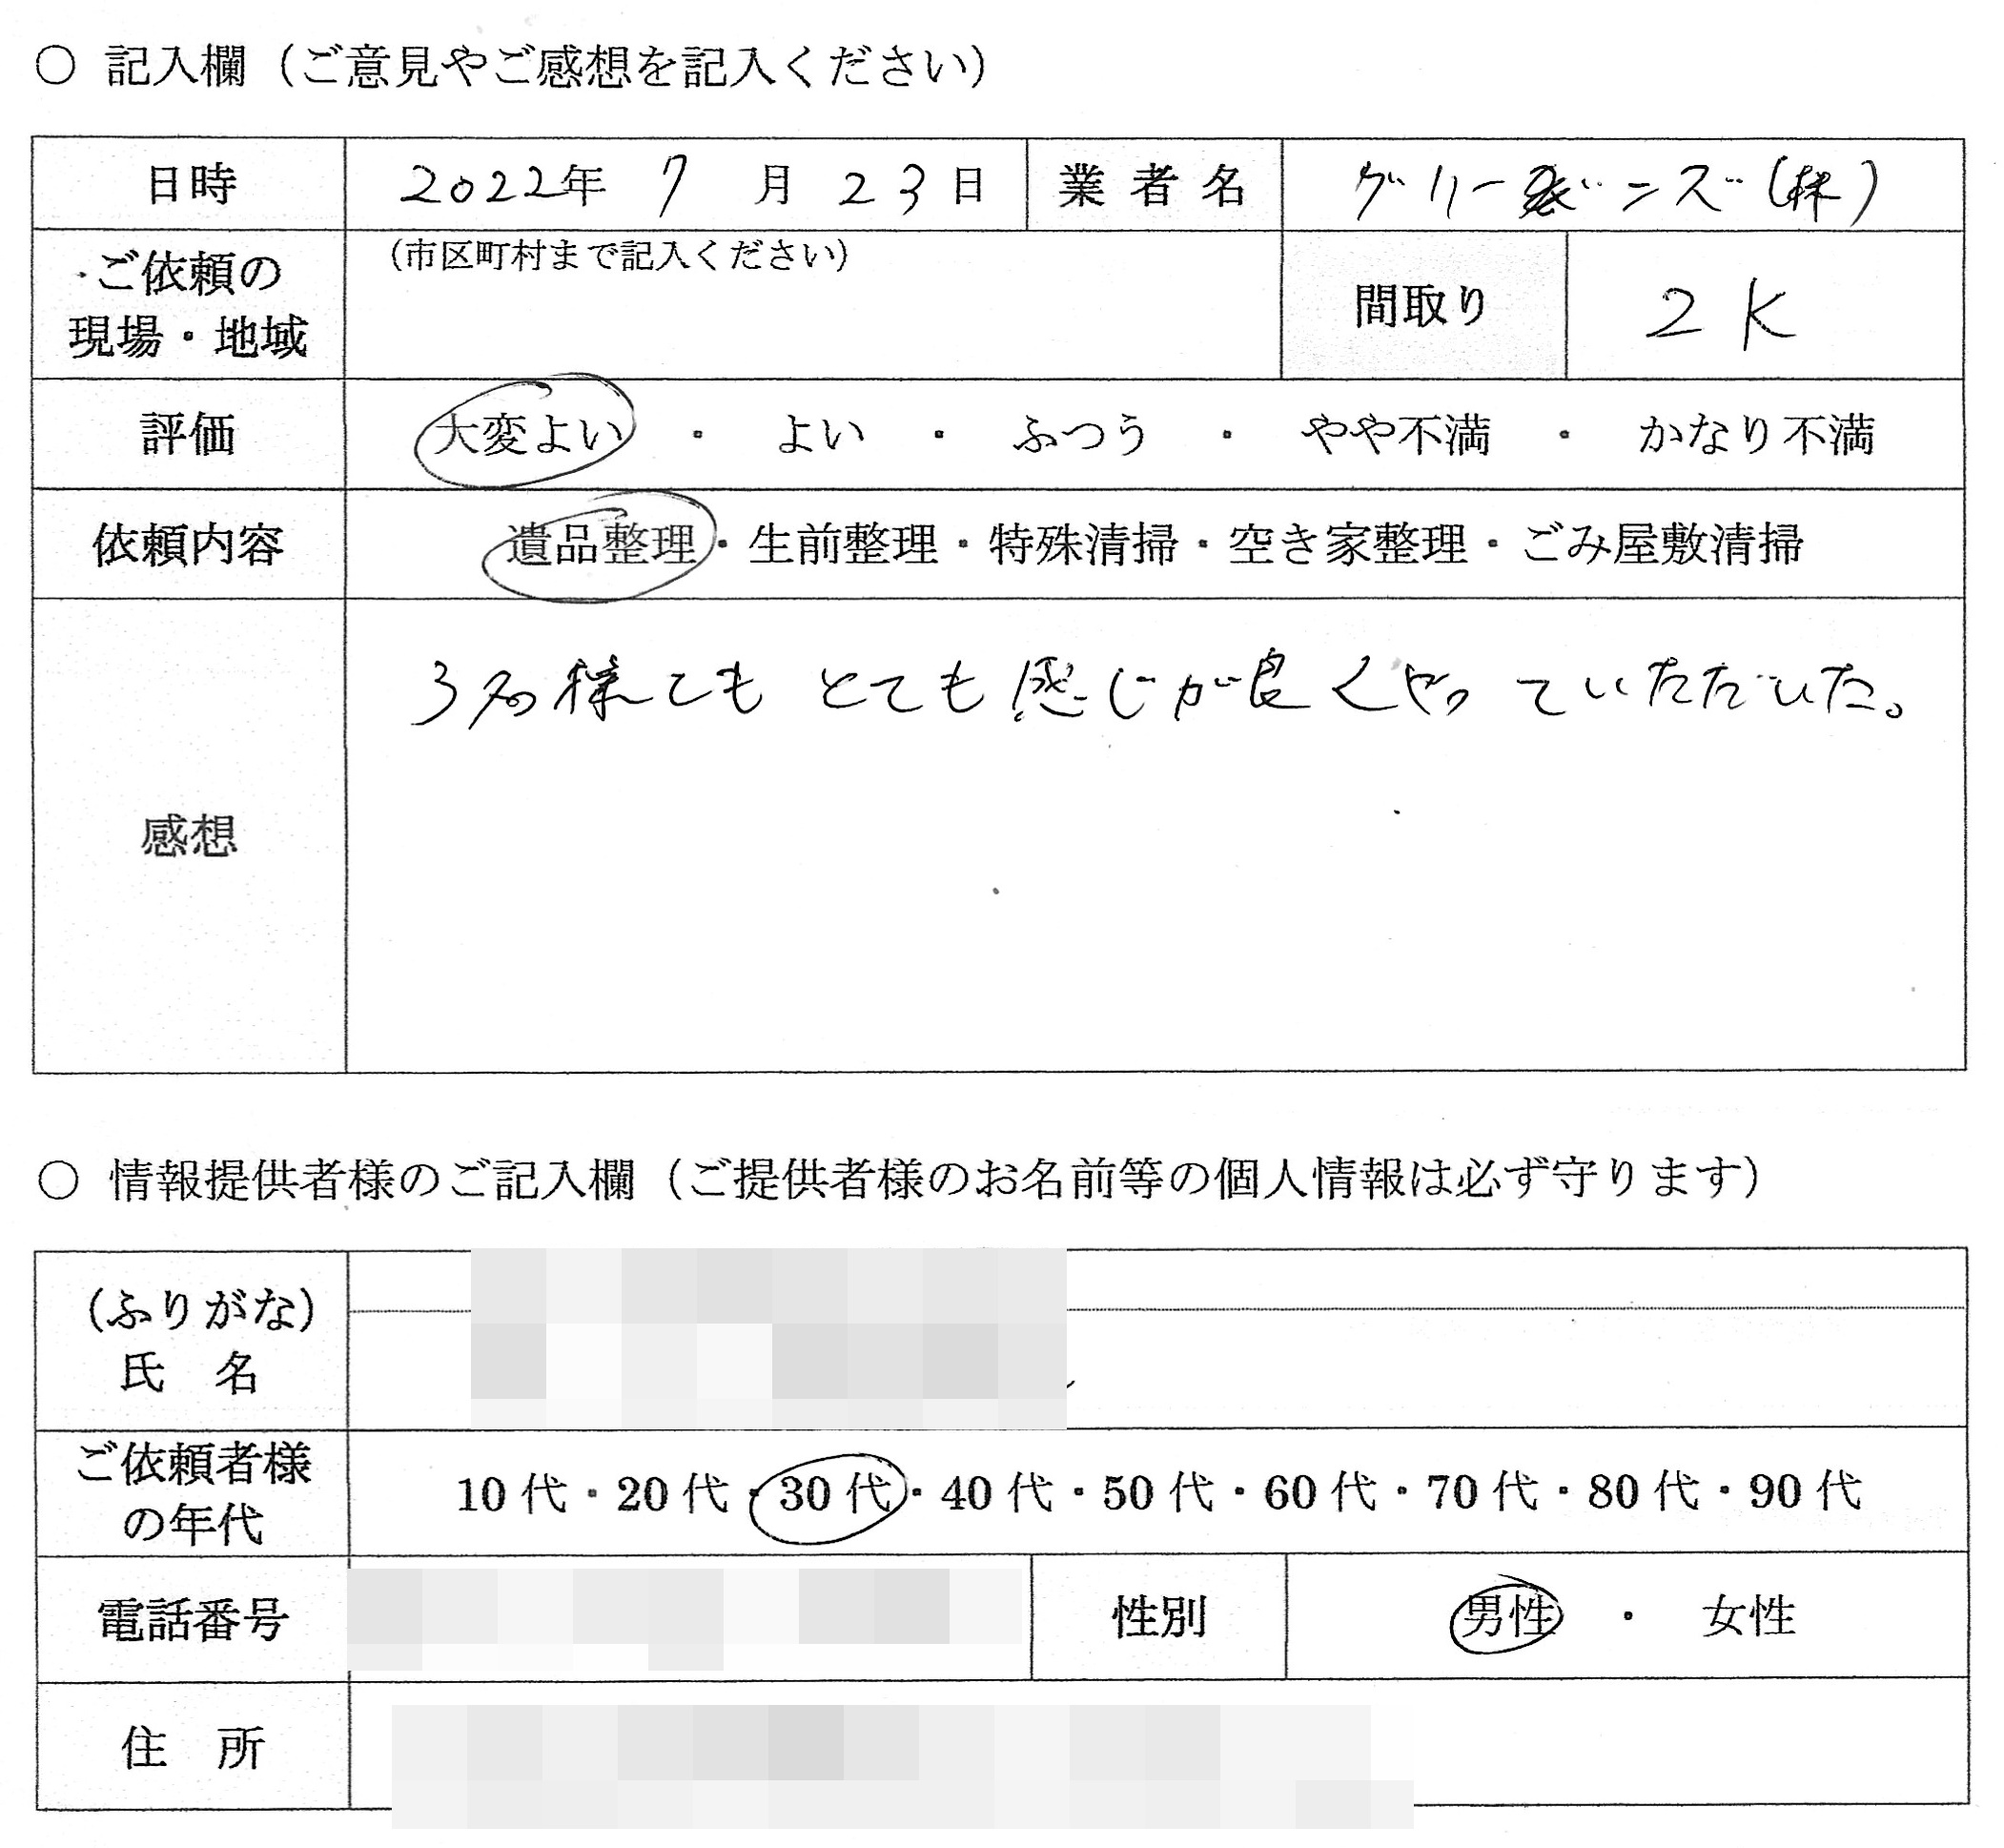 ○ 記入欄（ご意見やご感想を記入ください）
日時 2022年 7 月 23日 業者名 グリーンズ(株)
ご依頼の
現場・地域
(市区町村まで記入ください)
間取り 2K
評価 大変よい ・ よい ・ ふつう ・ やや不満 ・ かなり不満
依頼内容 遺品整理・生前整理・特殊清掃・空き家整理・ごみ屋敷清掃
感想
3名様とも とても感じが良くやっていただいた。
○ 情報提供者様のご記入欄（ご提供者様のお名前等の個人情報は必ず守ります）
（ふりがな）
氏 名
ご依頼者様
の年代
10代・20代・30代・40代・50代・60代・70代・80代・90代
電話番号 性別 男性 ・ 女性
住 所